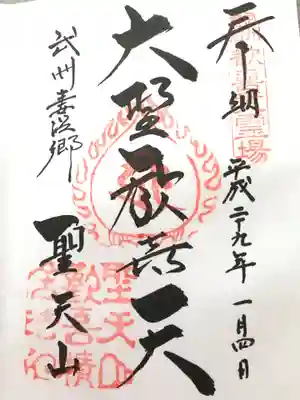 奉納 平成二十九年 一月四日
大聖歓喜天
武州妻沼郷
聖天山
聖天山